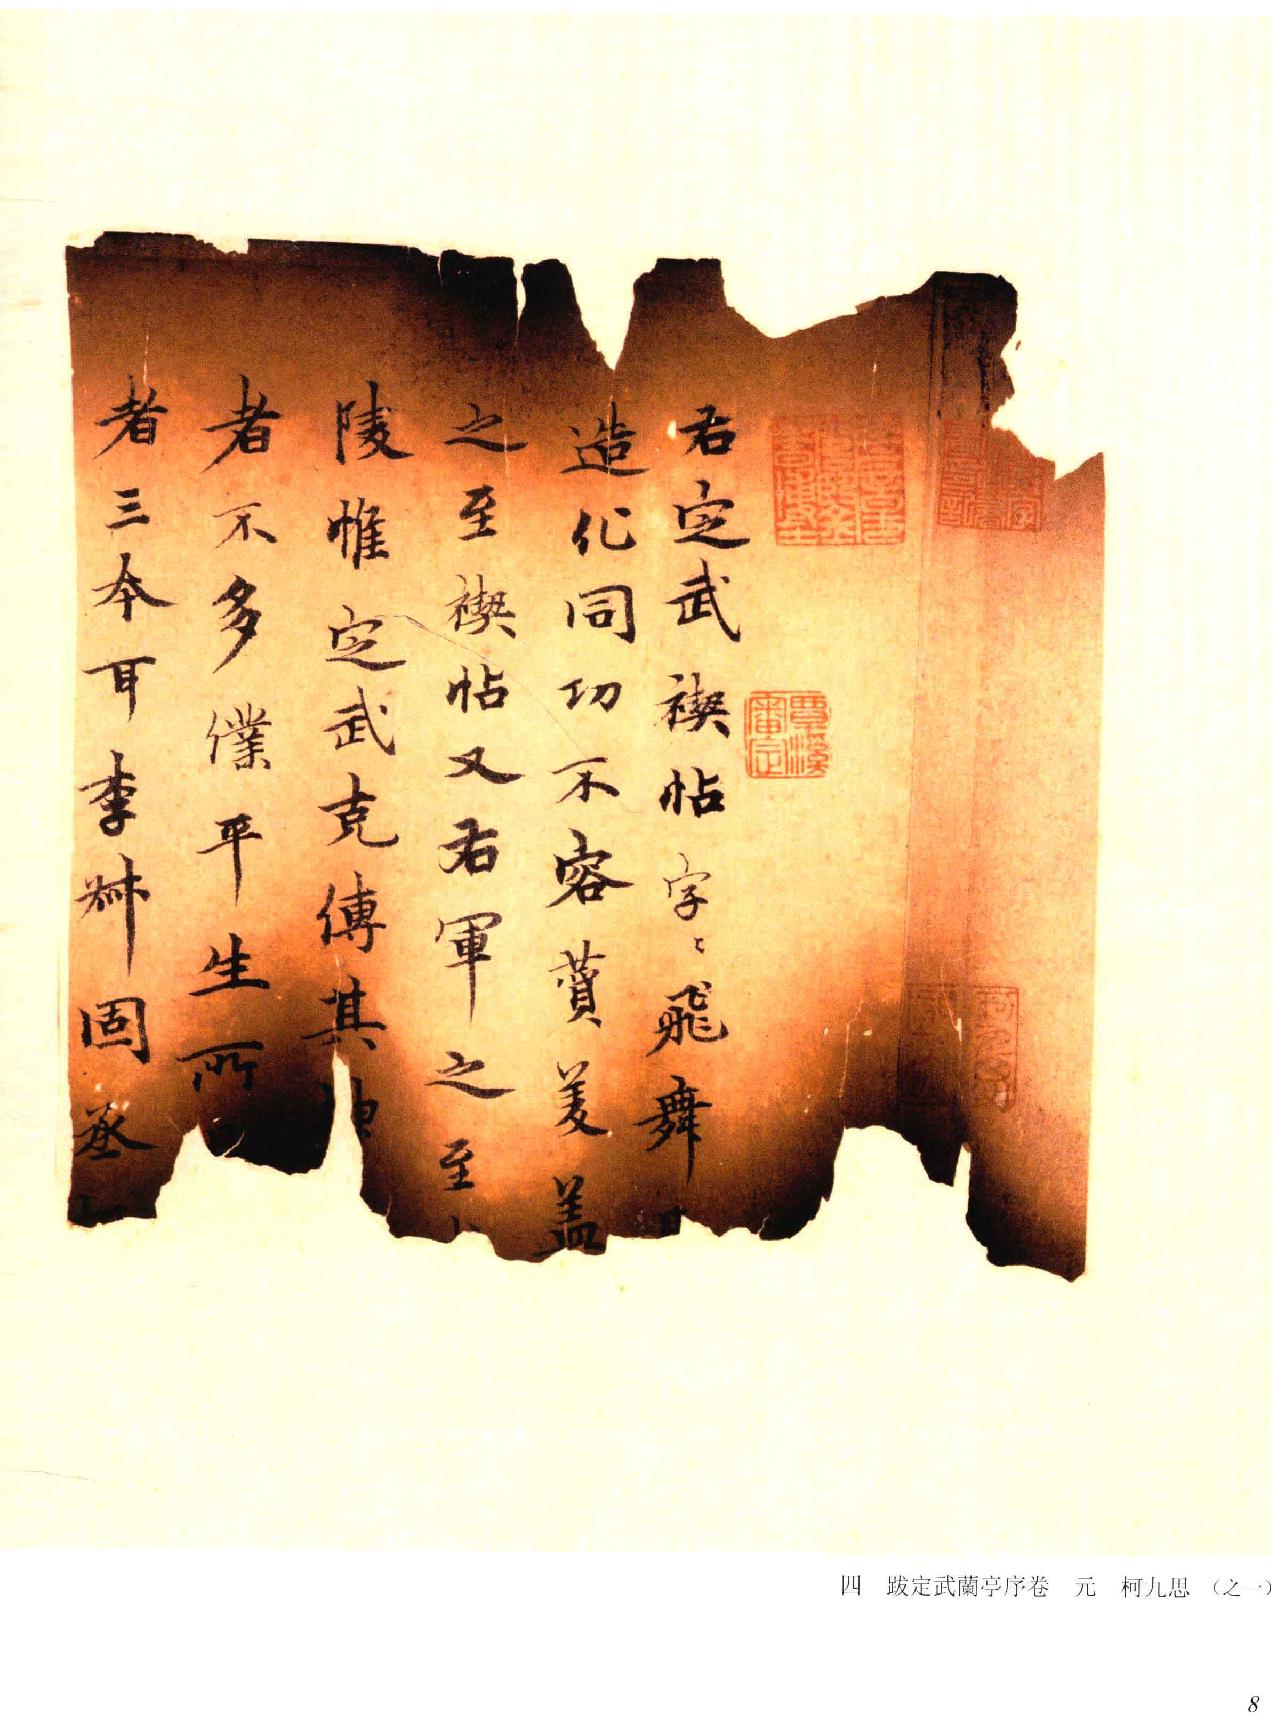 右定武禊帖字〻飛舞
造化同功不容賛美盖
之至禊帖又右軍之至
陵惟定武克傳其
者不多僕平生所
者三本耳李叔固丞
覃溪
審定
四　跋定武蘭亭序卷　元　柯九思　（之一）
8